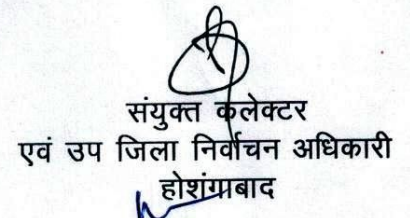 संयुक्त कलेक्टर
एवं उप जिला निर्वाचन अधिकारी
होशंगाबाद